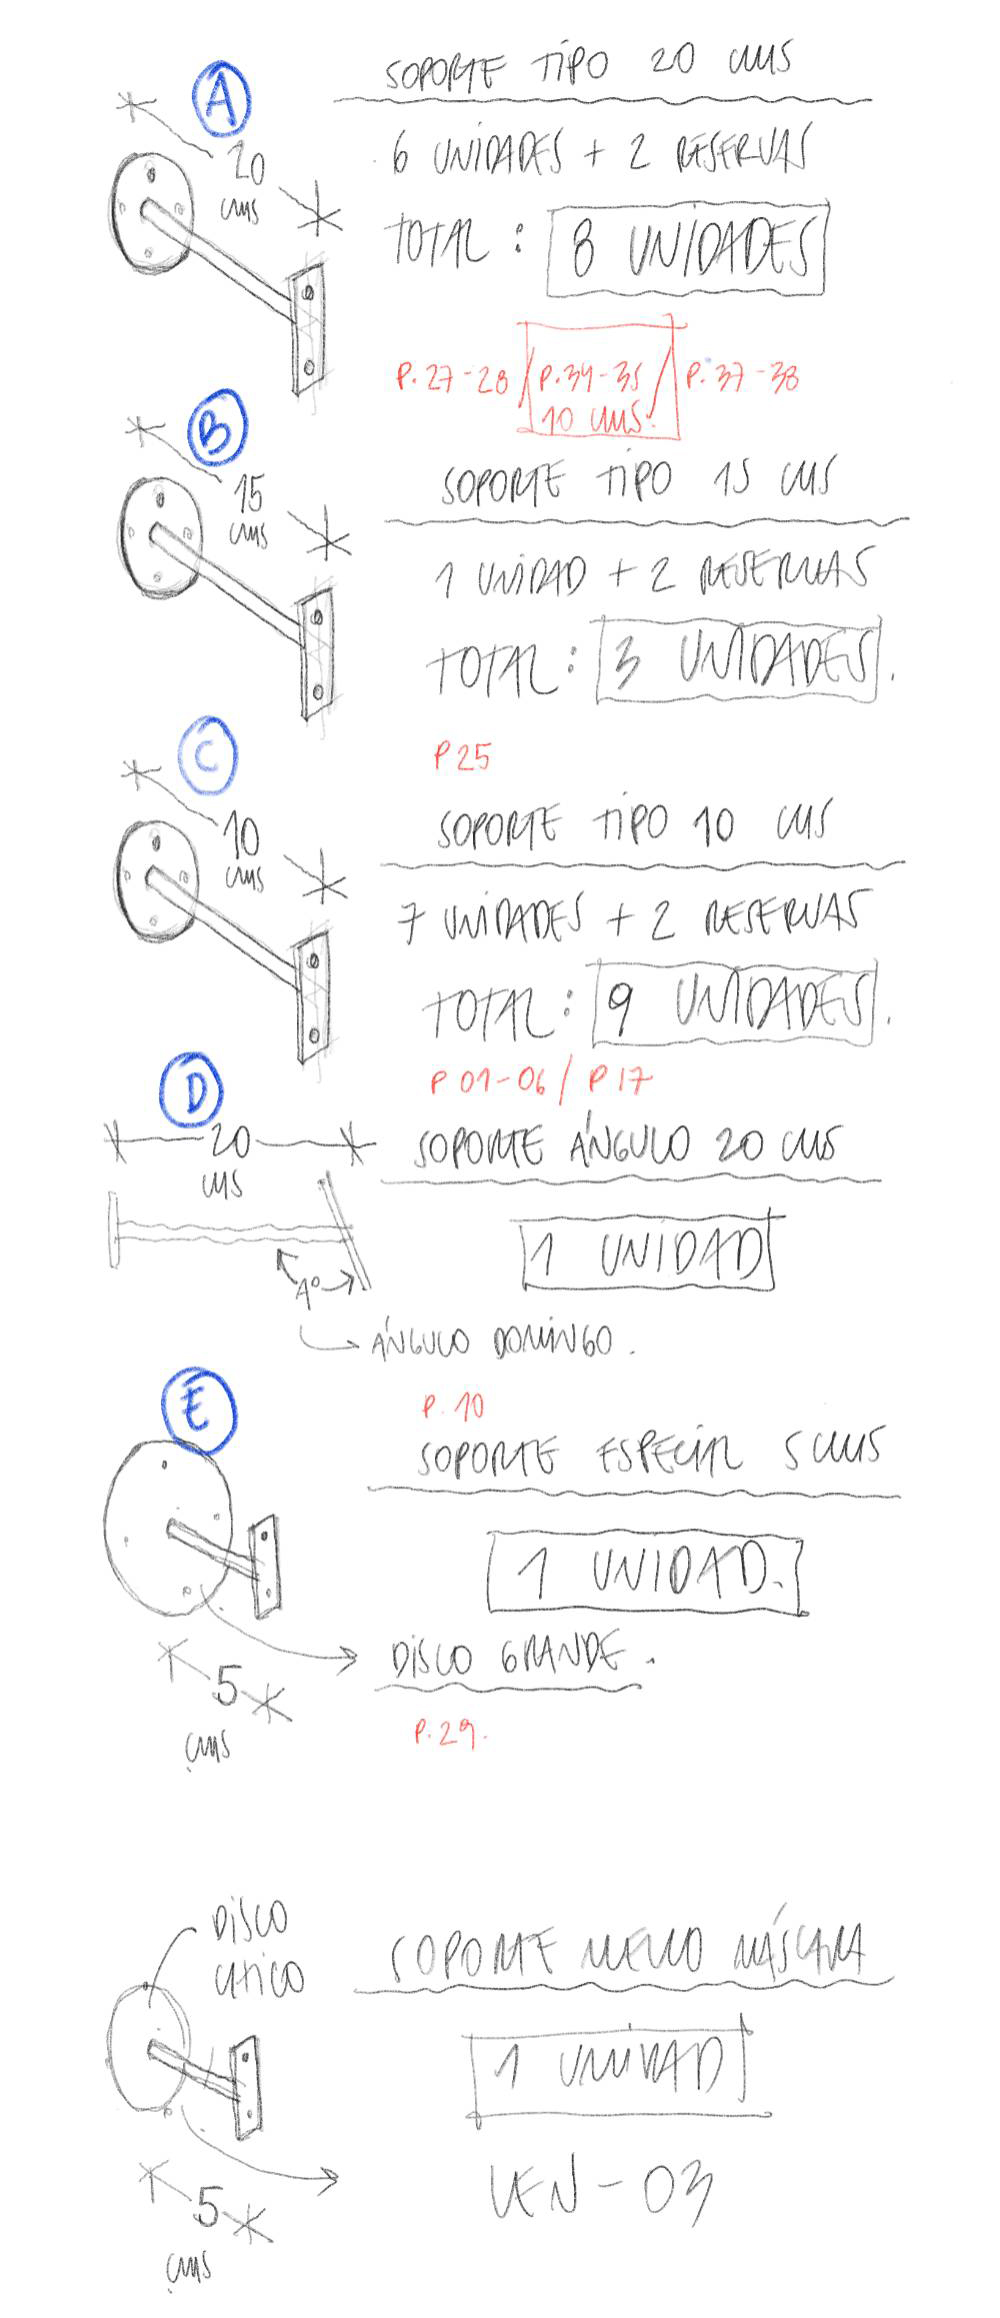 A
SOPORTE TIPO 20 CMS
20
CMS
6 UNIDADES + 2 RESERVAS
TOTAL : 8 UNIDADES
P.27-28 / P.34-35 / P.37-38
10 CMS.
B
15
CMS
SOPORTE TIPO 15 CMS
1 UNIDAD + 2 RESERVAS
TOTAL : 3 UNIDADES.
P 25
C
10
CMS
SOPORTE TIPO 10 CMS
7 UNIDADES + 2 RESERVAS
TOTAL : 9 UNIDADES.
P 01-06 / P 17
D
20
CMS
SOPORTE ÁNGULO 20 CMS
1 UNIDAD
Aº
ÁNGULO DOMINGO.
E
P. 10
SOPORTE ESPECIAL 5 CMS
1 UNIDAD.
DISCO GRANDE.
5
CMS
P.29.
DISCO
SOPORTE MÁSCARA
1 UNIDAD
5
CMS
VEN-03